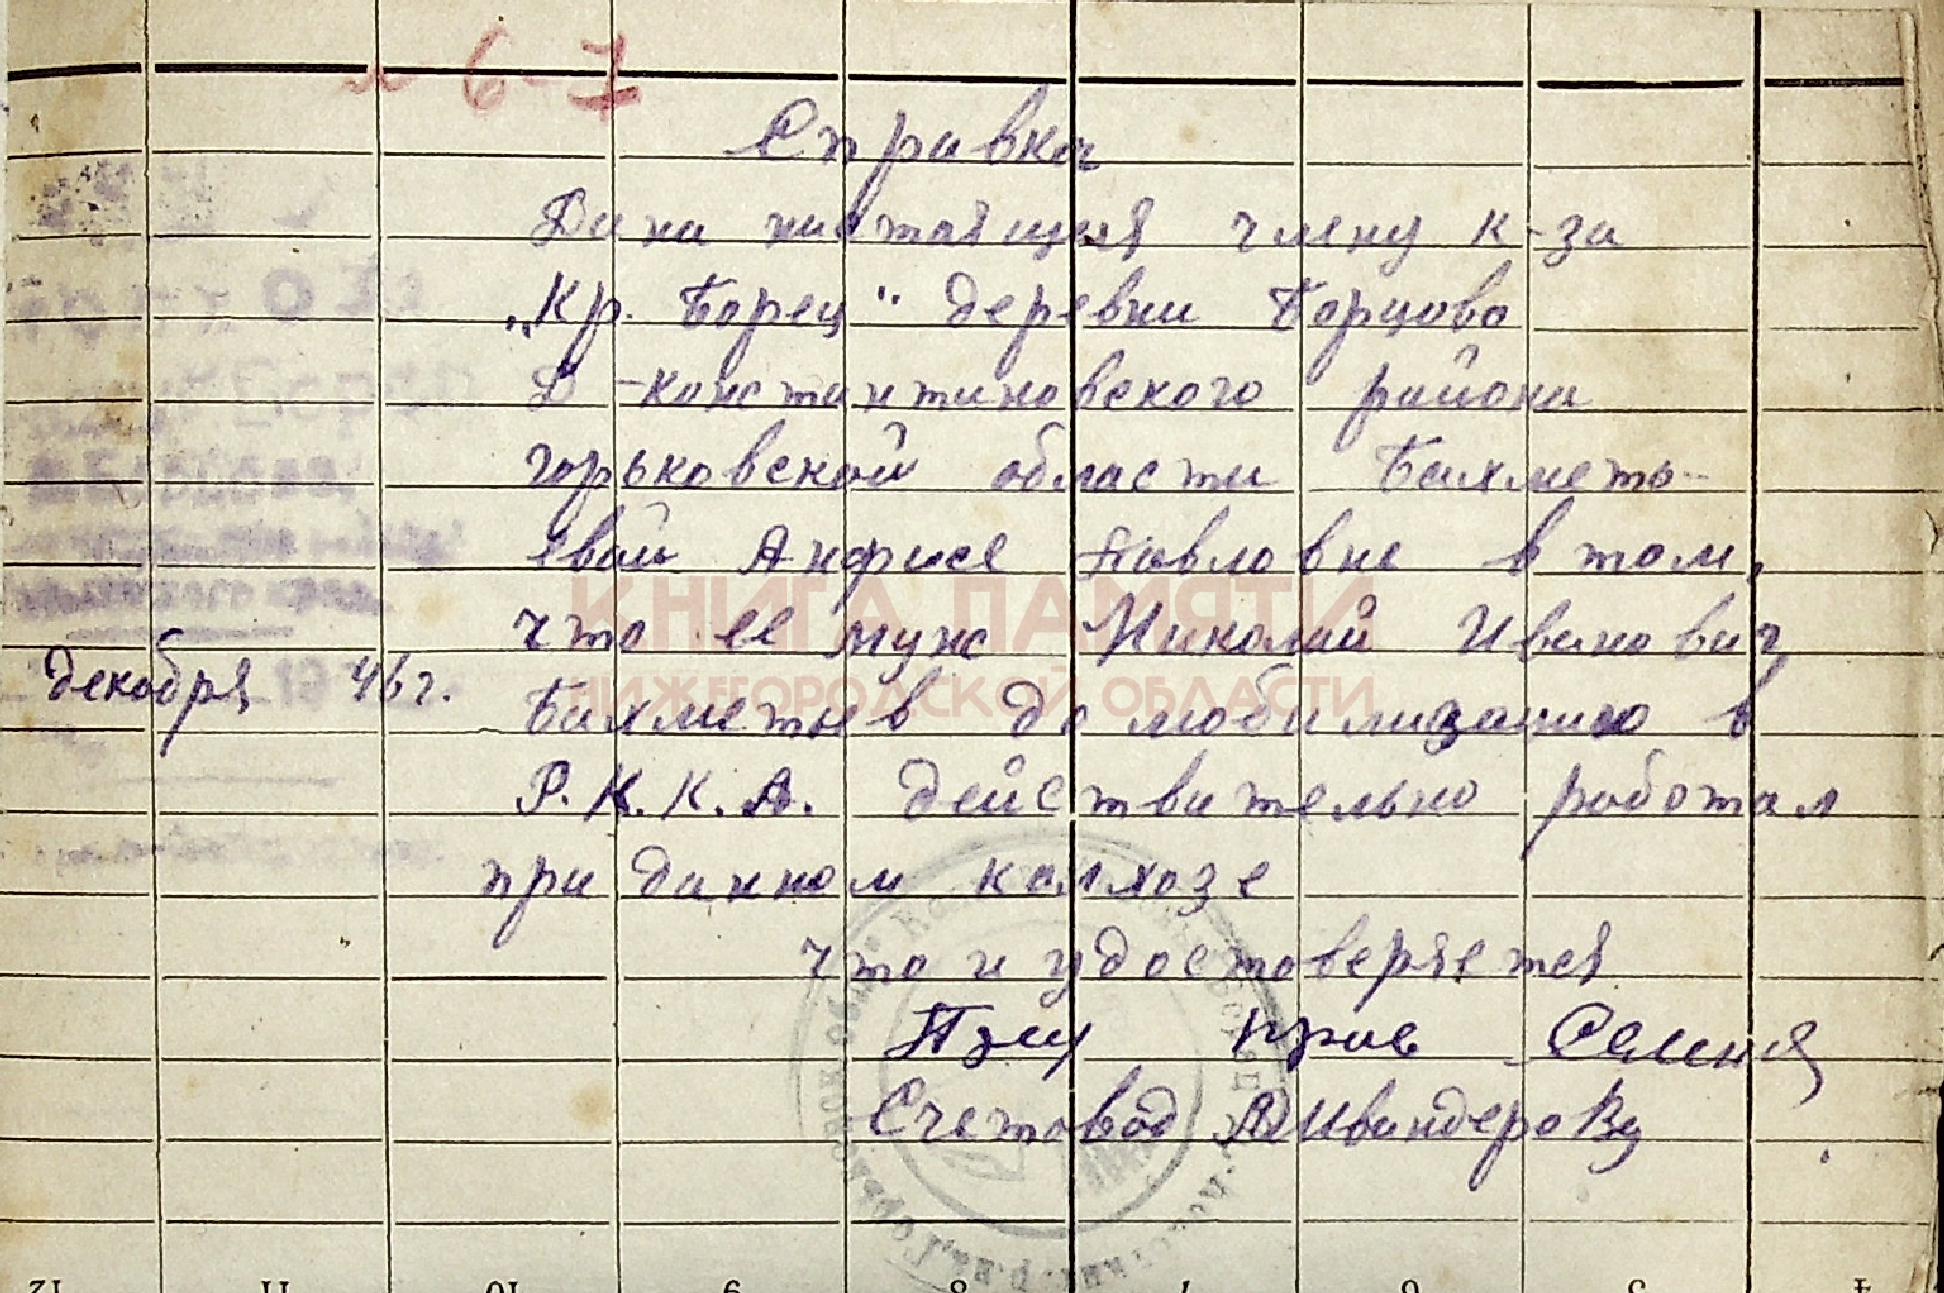 6-7
Справка
Дана настоящея члену к-за
„Кр. Борец" деревни Борцово
Д-константиновского района
горьковской области Бахметь-
евой Анфисе Павловне в том,
что ее муж Николай Иванович
декабря 46 г.
Бахметьев до мобилизацию в
Р.К.К.А. действительно работал
при данном колхозе
что и удостоверяется
Счетовод
КНИГА ПАМЯТИ
НИЖЕГОРОДСКОЙ ОБЛАСТИ
12 11 10 9 8 7 6 5 4